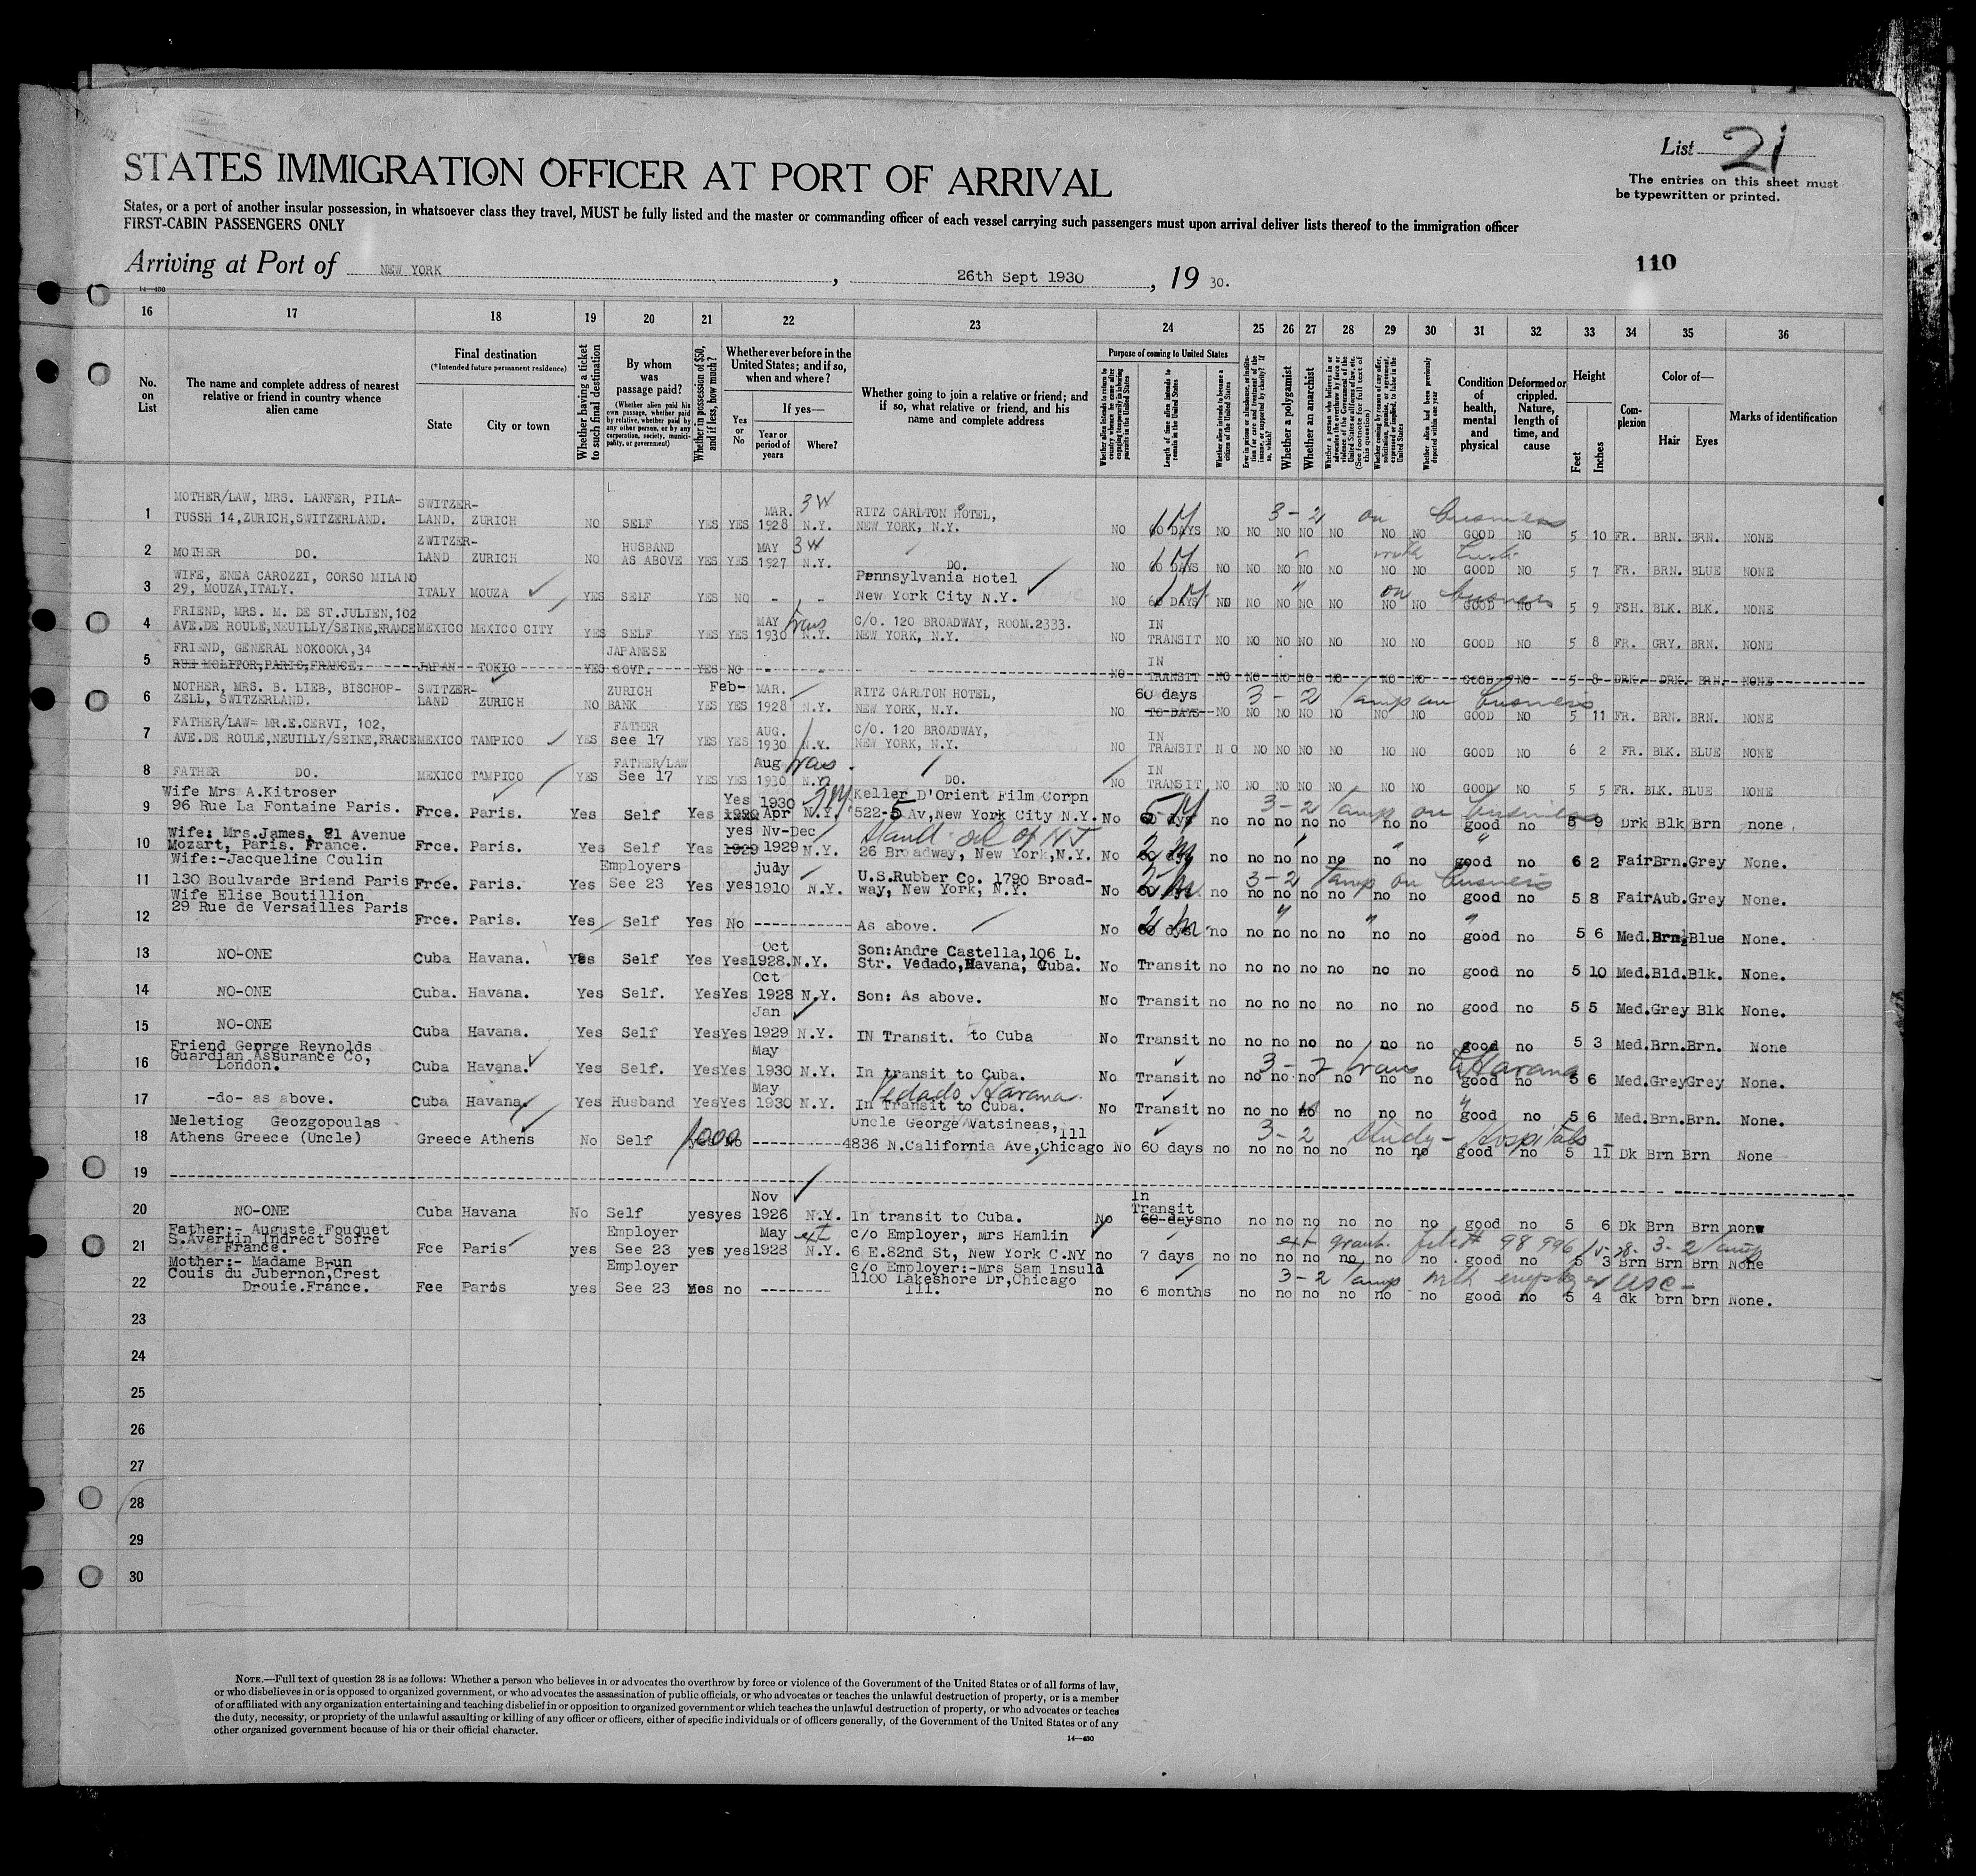 List 21
The entries on this sheet must
be typewritten or printed.
STATES IMMIGRATION OFFICER AT PORT OF ARRIVAL
States, or a port of another insular possession, in whatsoever class they travel, MUST be fully listed and the master or commanding officer of each vessel carrying such passengers must upon arrival deliver lists thereof to the immigration officer
FIRST-CABIN PASSENGERS ONLY
Arriving at Port of NEW YORK , 26th Sept 1930 , 19 30.
110
14—430
16 17 18 19 20 21 22 23 24 25 26 27 28 29 30 31 32 33 34 35 36
No. on List
The name and complete address of nearest relative or friend in country whence alien came
Final destination (*Intended future permanent residence)
State City or town
Whether having a ticket to such final destination
By whom was passage paid?
(Whether alien paid his own passage, whether paid by relative, whether paid by any other person, or by any corporation, society, municipality, or government)
Whether in possession of $50, and if less, how much?
Whether ever before in the United States; and if so, when and where?
Yes or No
If yes—
Year or period of years
Where?
Whether going to join a relative or friend; and if so, what relative or friend, and his name and complete address
Purpose of coming to United States
Length of time alien intends to remain in the United States
Whether alien intends to become a citizen of the United States
Whether a polygamist
Whether an anarchist
Whether alien had been previously deported within one year
Condition of health, mental and physical
Deformed or crippled. Nature, length of time, and cause
Height
Feet Inches
Complexion
Color of—
Hair Eyes
Marks of identification
1 MOTHER/LAW, MRS. LANFER, PILA-
TUSSH 14,ZURICH,SWITZERLAND. SWITZER-LAND. ZURICH NO SELF YES YES MAR. 1928 N.Y. 3W RITZ CARLTON HOTEL, NEW YORK, N.Y. NO 60 DAYS NO NO NO NO NO NO NO GOOD NO 5 10 FR. BRN. BRN. NONE
3-2 on business
2 MOTHER DO. ZWITZER-LAND ZURICH NO HUSBAND AS ABOVE YES YES MAY 1927 N.Y. 3W DO. NO 60 DAYS NO NO NO NO NO NO NO GOOD NO 5 7 FR. BRN. BLUE NONE
3 WIFE, ENEA CAROZZI, CORSO MILANO
29, MOUZA,ITALY. ITALY MOUZA YES SELF YES NO - - Pennsylvania Hotel New York City N.Y. NO 60 DAYS NO NO NO NO NO NO NO GOOD NO 5 9 FSH. BLK. BLK. NONE
on business
4 FRIEND, MRS. M. DE ST.JULIEN,102
AVE.DE ROULE,NEUILLY/SEINE,FRANCE MEXICO MEXICO CITY YES SELF YES YES MAY 1930 N.Y. trans C/O. 120 BROADWAY, ROOM.2333. NEW YORK, N.Y. NO IN TRANSIT NO NO NO NO NO NO NO GOOD NO 5 8 FR. GRY. BRN. NONE
5 FRIEND, GENERAL NOKOOKA,34
RUE MOLITOR,PARIS,FRANCE. JAPAN TOKIO YES JAPANESE GOVT. YES NO - - NO IN TRANSIT NO NO NO NO NO NO NO GOOD NO 5 8 DRK. DRK. BRN. NONE
6 MOTHER, MRS. B. LIEB, BISCHOP-
ZELL, SWITZERLAND. SWITZER-LAND ZURICH NO ZURICH BANK YES YES Feb- MAR. 1928 N.Y. RITZ CARLTON HOTEL, NEW YORK, N.Y. NO 60 days TO DAYS NO NO NO NO NO NO NO GOOD NO 5 11 FR. BRN. BRN. NONE
3-2 temp on business
7 FATHER/LAW= MR.E.CERVI, 102,
AVE.DE ROULE,NEUILLY/SEINE,FRANCE MEXICO TAMPICO YES FATHER see 17 YES YES AUG. 1930 N.Y. C/O. 120 BROADWAY, NEW YORK, N.Y. NO IN TRANSIT N O NO NO NO NO NO NO GOOD NO 6 2 FR. BLK. BLUE NONE
8 FATHER DO. MEXICO TAMPICO YES FATHER/LAW See 17 YES YES Aug 1930 N.Y. trans DO. NO IN TRANSIT NO NO NO NO NO NO NO GOOD NO 5 5 FR. BLK. BLUE NONE
9 Wife Mrs A.Kitroser
96 Rue La Fontaine Paris. Frce. Paris. Yes Self Yes Yes 1930 Apr N.Y. Keller D'Orient Film Corpn 522-5 Av,New York City N.Y. No 60 dys no no no no no no no good no 5 9 Drk Blk Brn none
3-2 temp on business
10 Wife: Mrs.James, 81 Avenue
Mozart, Paris. France. Frce. Paris. Yes Self Yes yes 1929 Nv-Dec 1929 N.Y. Stand. oil of NJ 26 Broadway, New York,N.Y. No 2 M no no no no no no no good no 6 2 Fair Brn. Grey None.
11 Wife:-Jacqueline Coulin
130 Boulvarde Briand Paris Frce. Paris. Yes Employers See 23 Yes yes july 1910 N.Y. U.S.Rubber Co. 1790 Broad-way, New York, N.Y. No no no no no no no no good no 5 8 Fair Aub. Grey None.
3-2 temp on business
12 Wife Elise Boutillion
29 Rue de Versailles Paris Frce. Paris. Yes Self Yes No ---------- As above. No no no no no no no no good no 5 6 Med. Brn. Blue None.
13 NO-ONE Cuba Havana. Yes Self Yes Yes Oct 1928. N.Y. Son:Andre Castella,106 L. Str. Vedado,Havana, Cuba. No Transit no no no no no no no good no 5 10 Med. Bld. Blk. None.
14 NO-ONE Cuba. Havana. Yes Self. Yes Yes Oct 1928 N.Y. Son: As above. No Transit no no no no no no no good no 5 5 Med. Grey Blk None.
15 NO-ONE Cuba Havana. Yes Self Yes Yes Jan 1929 N.Y. IN Transit. to Cuba No Transit no no no no no no no good no 5 3 Med. Brn. Brn. None
16 Friend George Reynolds
Guardian Assurance Co,
London. Cuba Havana. Yes Self. Yes Yes May 1930 N.Y. In transit to Cuba. No Transit no no no no no no no good no 5 6 Med. Grey Grey None.
3-2 trans to Havana
17 -do- as above. Cuba Havana. Yes Husband Yes Yes May 1930 N.Y. Vedado Havana. In Transit to Cuba. No Transit no no no no no no no good no 5 6 Med. Brn. Brn. None.
18 Meletiog Geozgopoulas
Athens Greece (Uncle) Greece Athens No Self 1000 No ---------- Uncle George Vatsineas, 4836 N.California Ave,Chicago Ill No 60 days no no no no no no no good no 5 11 Dk Brn Brn None
3-2 study - Hospitals
19
20 NO-ONE Cuba Havana No Self yes yes Nov 1926 N.Y. In transit to Cuba. No In Transit 60 days no no no no no no no good no 5 6 Dk Brn Brn none
21 Father:- Auguste Fouquet
S.Avertin Indrect Soire
France. Fce Paris yes Employer See 23 yes yes May 1928 N.Y. ext c/o Employer, mrs Hamlin 6 E.82nd St, New York C.NY no 7 days no no no no no no no good no 5 3 Brn Brn Brn None
ext grant. file# 98996/15-28- 3-2 temp
22 Mother:- Madame Brun
Couis du Jubernon,Crest
Drouie.France. Fee Paris yes Employer See 23 Yes no -------- c/o Employer:-Mrs Sam Insuld 1100 Lakeshore Dr,Chicago Ill. no 6 months no no no no no no no good no 5 4 dk brn brn None.
3-2 temp with employer USC-
23
24
25
26
27
28
29
30
NOTE.—Full text of question 28 is as follows: Whether a person who believes in or advocates the overthrow by force or violence of the Government of the United States or of all forms of law,
or who disbelieves in or is opposed to organized government, or who advocates the assassination of public officials, or who advocates or teaches the unlawful destruction of property, or is a member
of or affiliated with any organization entertaining and teaching disbelief in or opposition to organized government or which teaches the unlawful destruction of property, or who advocates or teaches
the duty, necessity, or propriety of the unlawful assaulting or killing of any officer or officers, either of specific individuals or of officers generally, of the Government of the United States or of any
other organized government because of his or their official character.
14—430